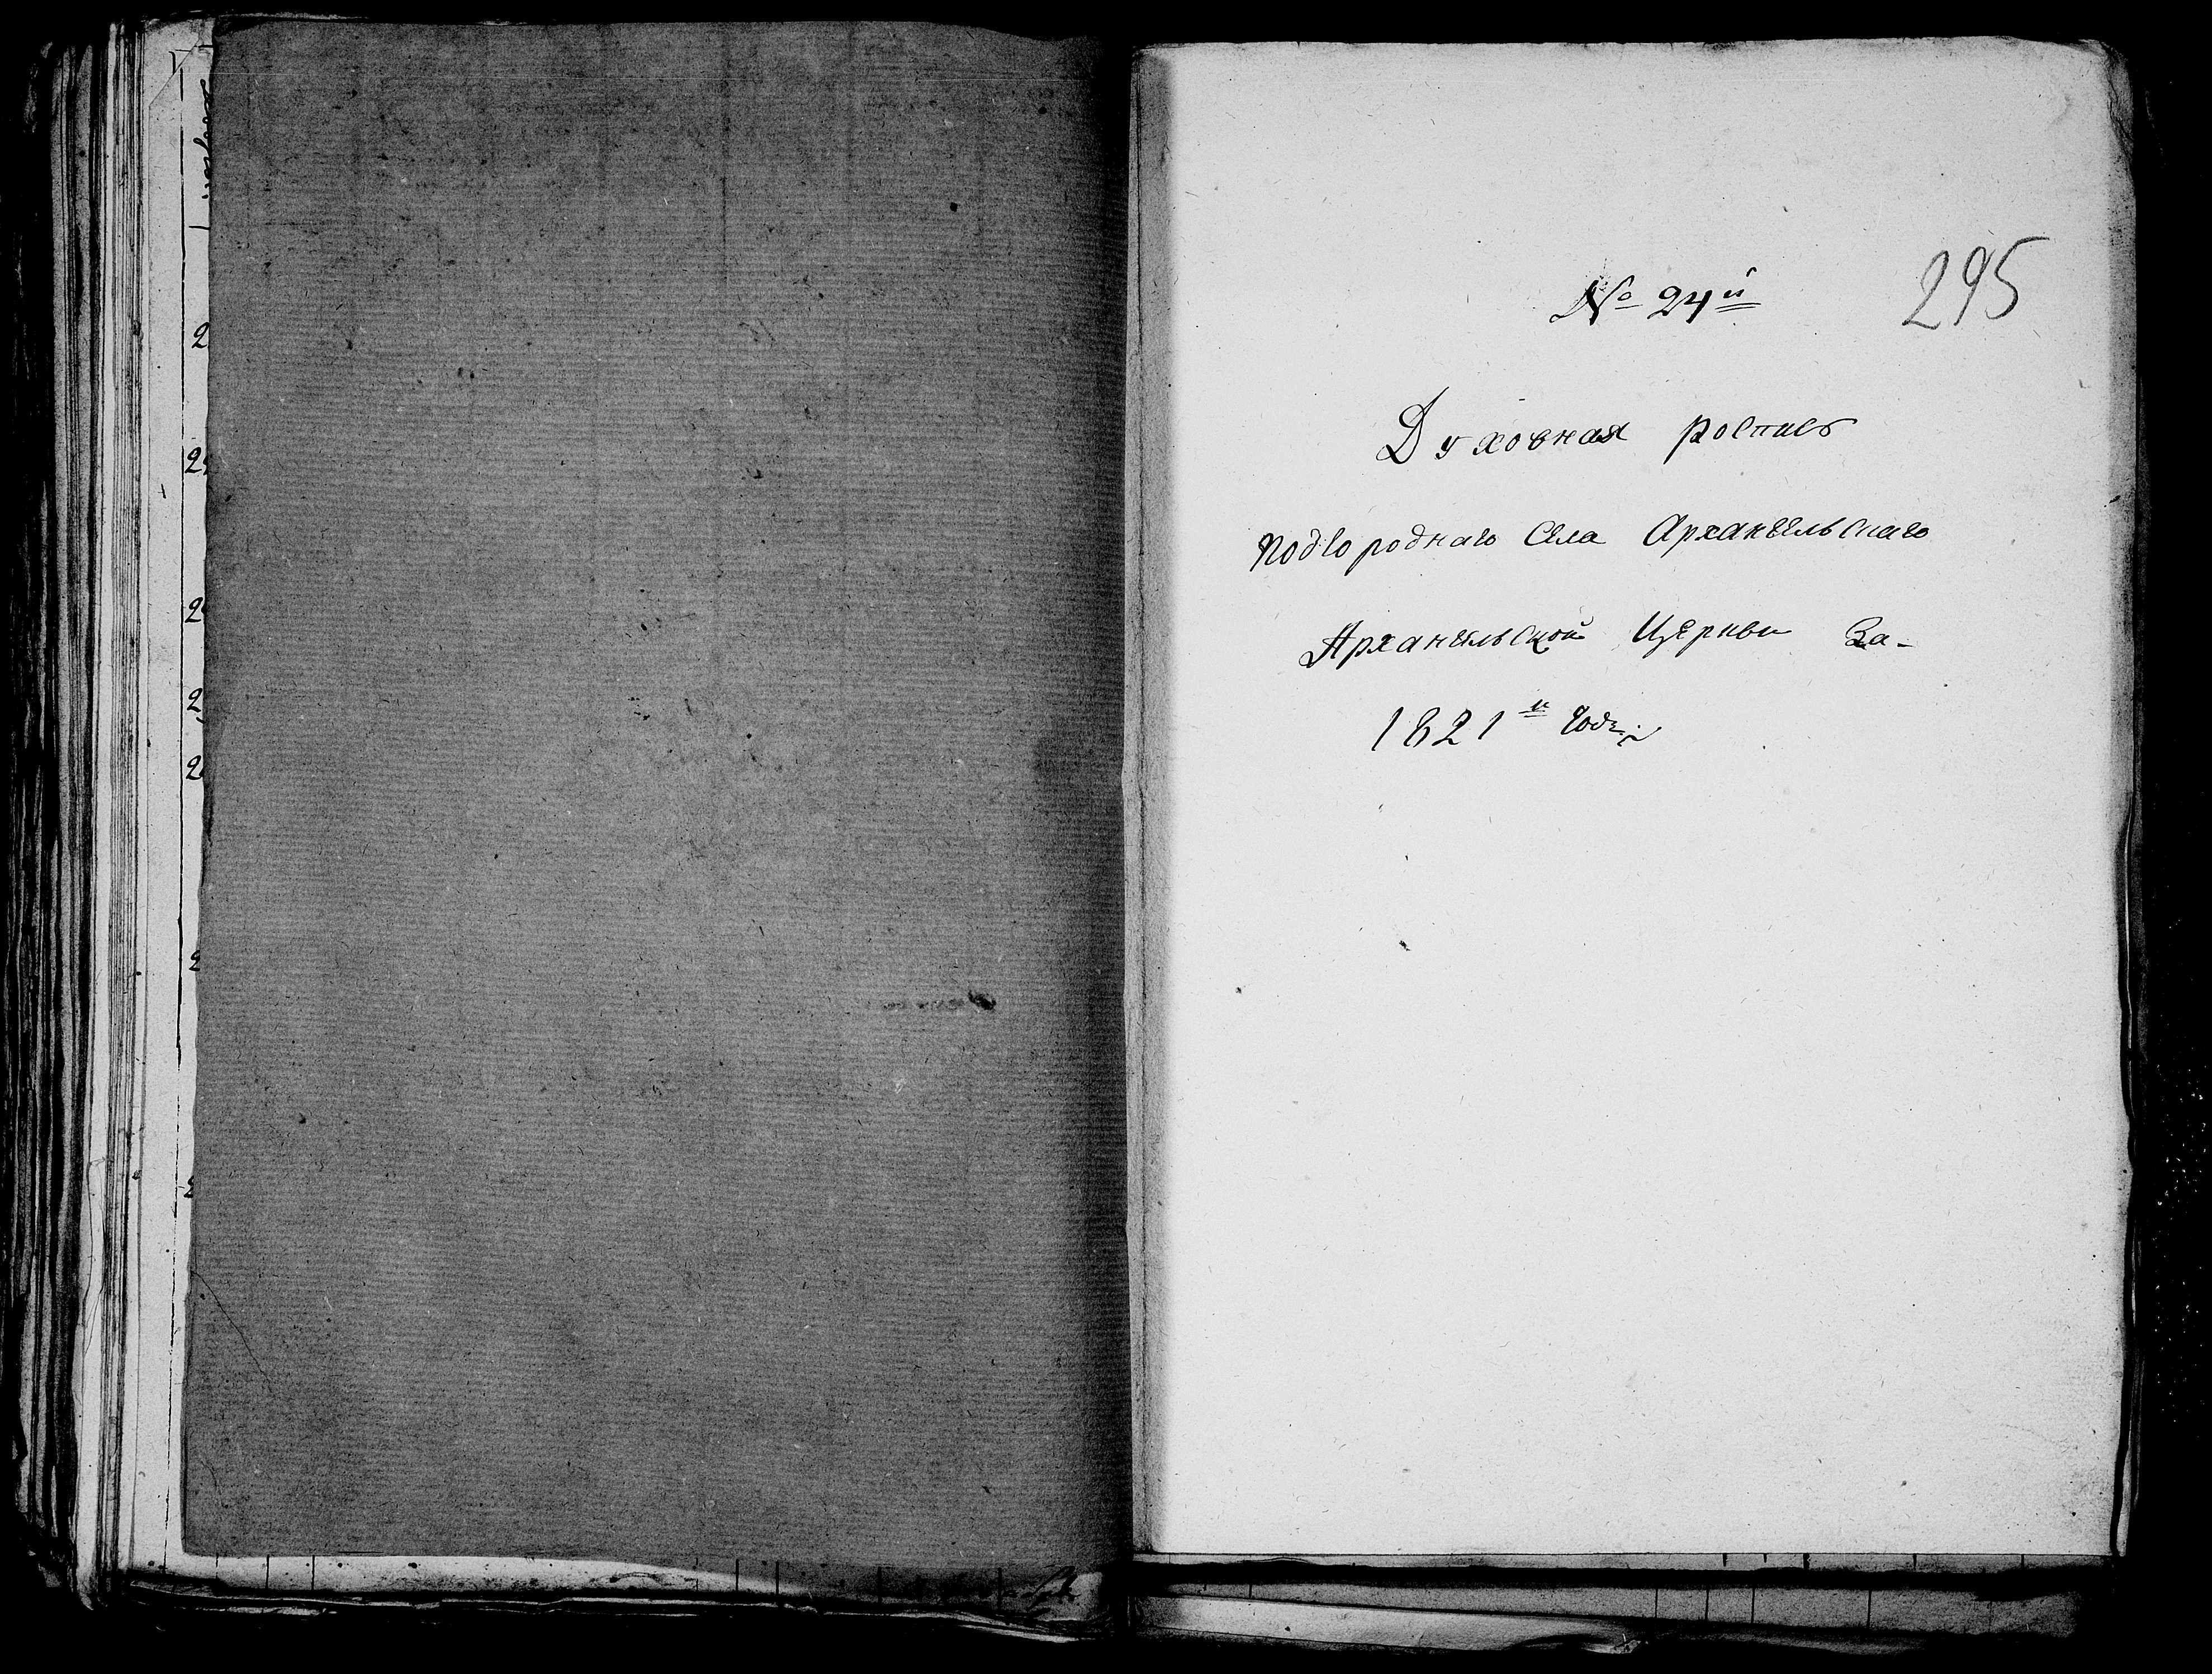 № 24й
295
Духовная роспись
подгороднаго Села Архангельскаго
Архангельской Церкви За-
1821й Годъ